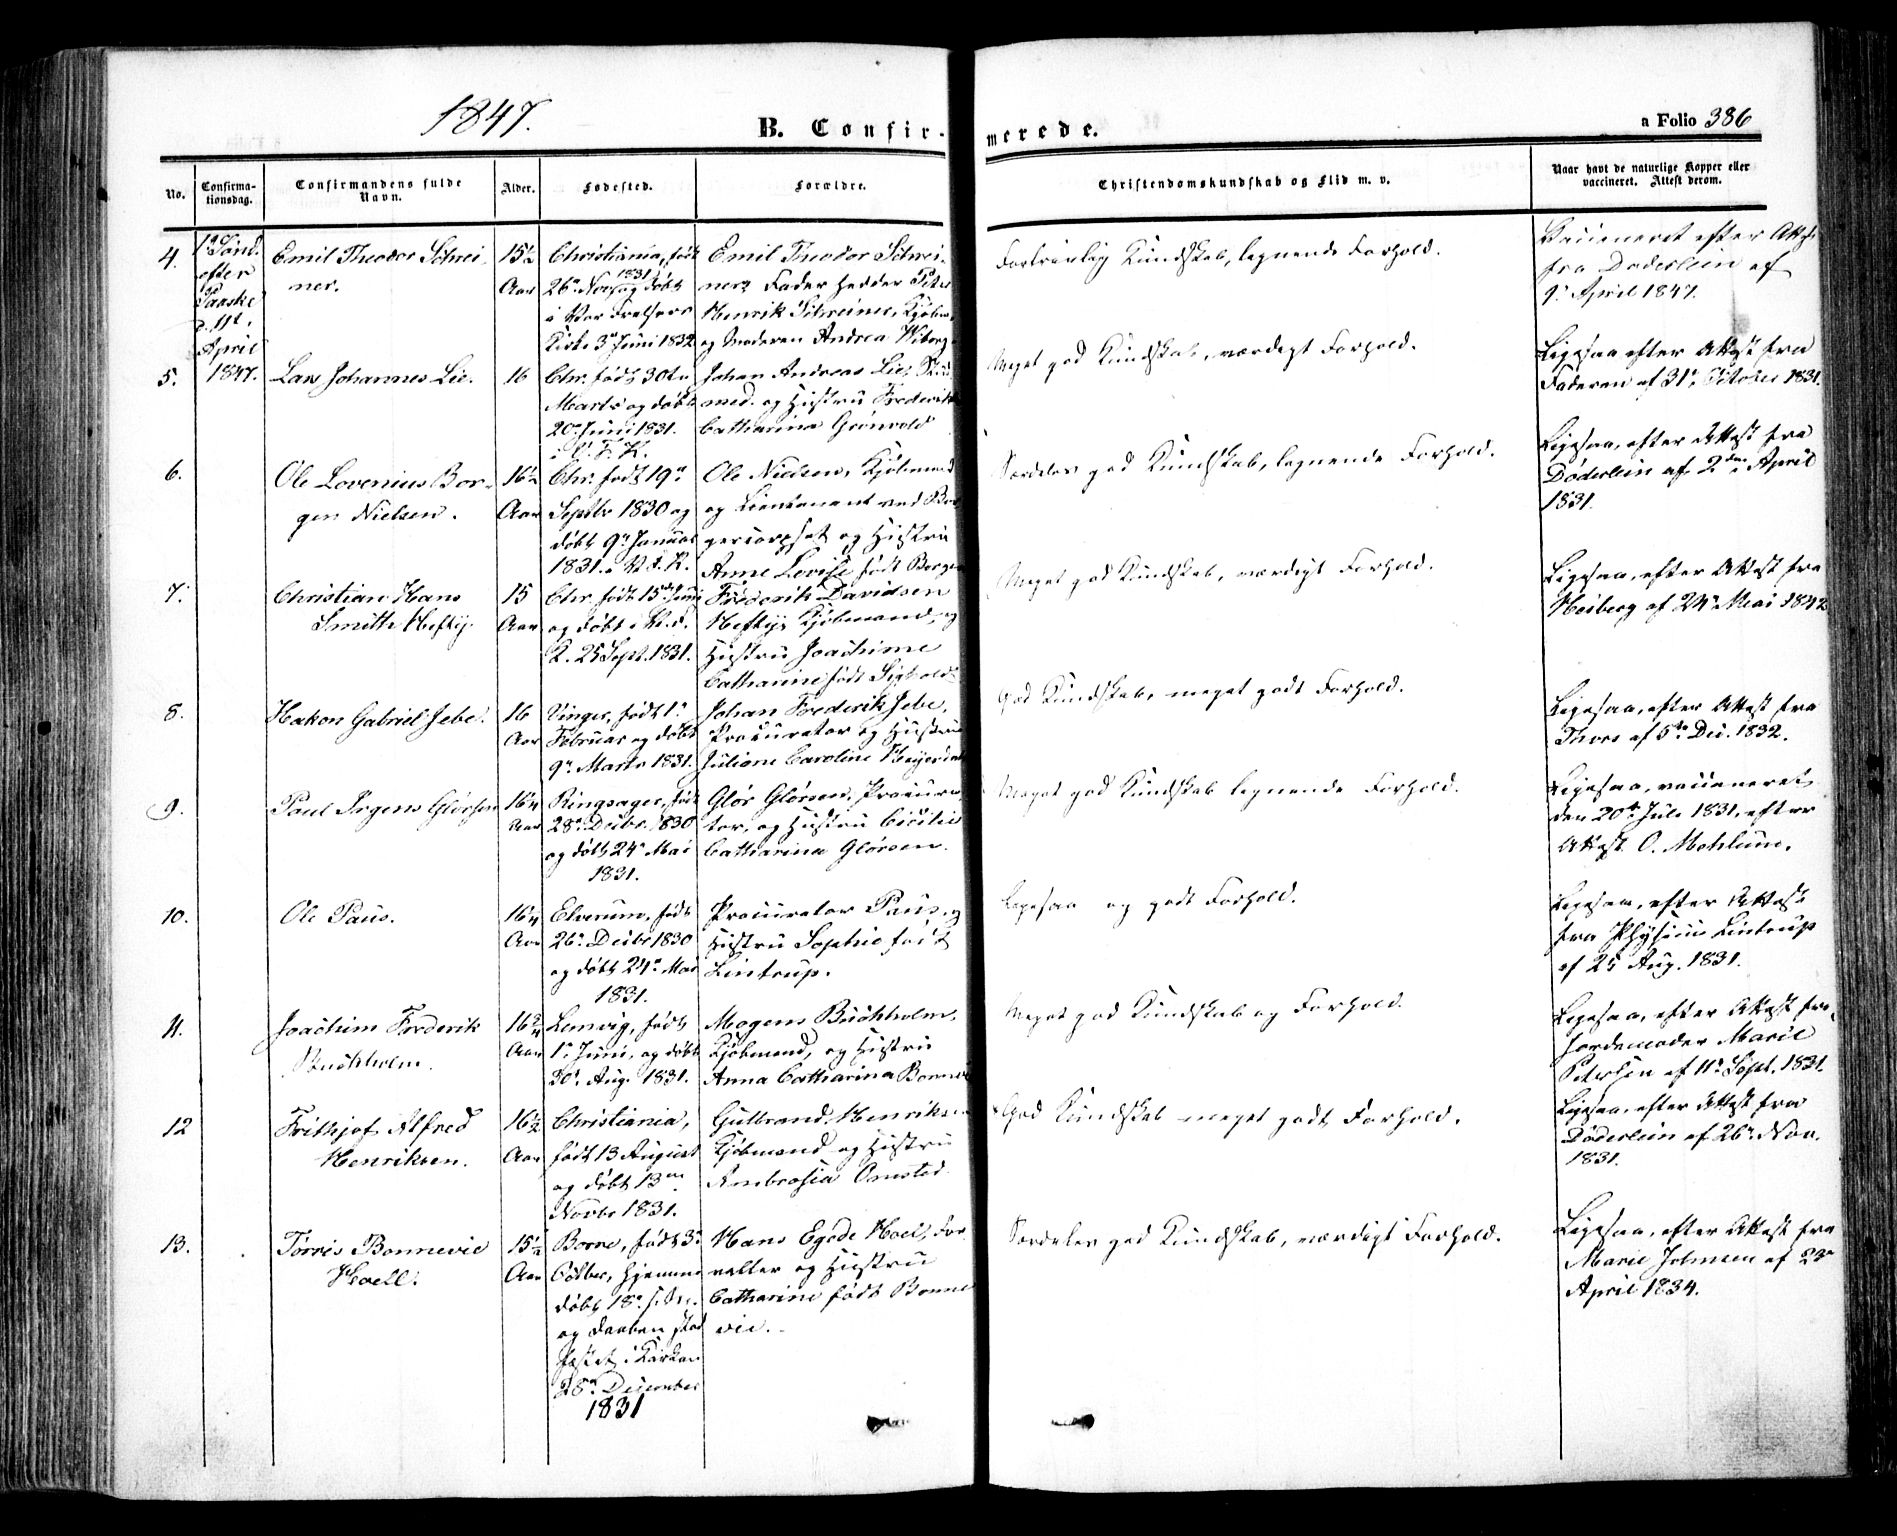 1847.
B. Confir-
merede.
a Folio 386
No.
Confirma-
tionsdag.
Confirmandens fulde
Navn.
Alder.
Fødested.
Forældre.
Christendomskundskab og Flid m. v.
Naar havt de naturlige Kopper eller
vaccineret. Attest derom.
4.
1ste Sønd.
efter
Paaske
April
1847.
Emil Theodor Schrei-
ner.
15½
Aar
Christiania, født
26de Nov 1831 og døbt
i Vor Frelsers
Kirke 3de Juni 1832
Emil Theodor Schrei-
ners Fader hedder Peter
Henrik Schreiner, Kjøbm.
og Moderen Andrea Wiborg
Fortrinlig Kundskab, lignende Forhold.
Vaccineret efter Attest
fra Døderlein af
9de April 1847.
5.
Lars Johannes Lie.
16
Chr. født 30te
Marts og døbt
20de Juni 1831.
i V. F. K.
Johan Andreas Lie, Stud.
med. og Hustru Frederikke
Catharina Grønvold
Meget god Kundskab, værdigt Forhold.
Ligesaa efter Attest fra
Faderen af 31te October 1831.
6.
Ole Lovenius Bor-
gen Nielsen.
16½
Aar
Chr. født 19de
Septbr 1830 og
døbt 9de Januar
1831 i V. F. K.
Ole Nielsen, Kjøbmand
og Lieutenant ved Bor-
gercorpset og Hustru
Anne Lovise født Borgen
Særdeles god Kundskab, lignende Forhold.
Ligesaa, efter Attest fra
Døderlein af 2den April
1831.
7.
Christian Hans
Smitth Heftÿ.
15
Aar
Chr. født 15de Juni
og døbt i
K. 25 Sept. 1831.
Frederik Davidsen
Heftÿe Kjøbmand, og
Hustru Joachime
Catharine født Sigholdt
Meget god Kundskab, værdigt Forhold.
Ligesaa, efter Attest fra
Heiberg af 24de Mai 1842
8.
Hakon Gabriel Jebe.
16
Aar
Vinger, født 1ste
Februar og døbt
9de Marts 1831.
Johan Frederik Jebe,
Procurator og Hustru
Juliane Caroline Meijerdahl
God Kundskab, meget godt Forhold.
Ligesaa, efter Attest fra
Thors af 5te Dec. 1832.
9.
Paul Irgens Glørsen
16¼
Aar
Ringsager, født
28de Decbr. 1830
og døbt 24de Mai
1831.
Glør Glørsen, Procura-
tor, og Hustru Cicilie
Catharina Glørsen.
Meget god Kundskab lignende Forhold.
Ligesaa, vaccineret
den 20de Juli 1831, efter
Attest O. Mohlum.
10.
Ole Paus.
16¼
Aar
Elverum, født
26de Decbr 1830
og døbt 24de Mai
1831.
Procurator Paus, og
Hustru Sophie født
Lintrup.
Ligesaa og godt Forhold.
Ligesaa, efter Attest
fra Physicus Lintrup
af 25 Aug. 1831.
11.
Joachim Frederik
Buchholm.
16¾
Aar
Lemvig, født
1ste Juni, og døbt
30te Aug. 1831.
Mogens Buchholm,
Kjøbmand, og Hustru
Anna Catharina Bonnevie
Meget god Kundskab og Forhold.
Ligesaa, efter Attest fra
Jordemoder Marie
Petersen af 11te Sept. 1831.
12
Frithjof Alfred
Henriksen.
16½
Aar
Christiania,
født 13 August
og døbt 13de
Novbr 1831.
Gulbrand Henriksen
Kjøbmand og Hustru
Ambrosia Onsted.
God Kundskab meget godt Forhold.
Ligesaa, efter Attest fra
Døderlein af 26de Nov.
1831.
13.
Tørris Bonnevie
Hoell.
15½
Aar
Borre, født 3de
Octbr, hjemme
døbt 18de
og Daaben stad
fæstet i Kirken
28de December
1831
Hans Egede Hoel, For-
valter og Hustru
Catharine født Bonne
vie.
Særdeles god Kundskab, værdigt Forhold.
Ligesaa, efter Attest fra
Marie Johnsen af 23de
April 1834.